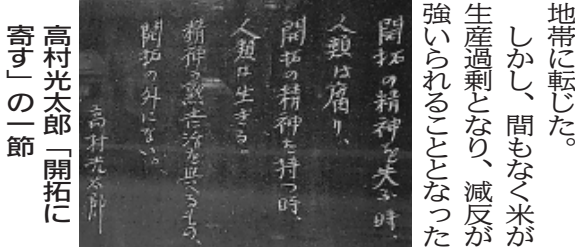 地帯に転じた。
しかし、間もなく米が
生産過剰となり、減反が
強いられることとなった
開拓の精神を失ふ時、
人類は腐り、
開拓の精神を持つ時、
人類は生きる。
精神の熱土に活を與へるもの、
開拓の外にない。
高村光太郎
高村光太郎「開拓に
寄す」の一節